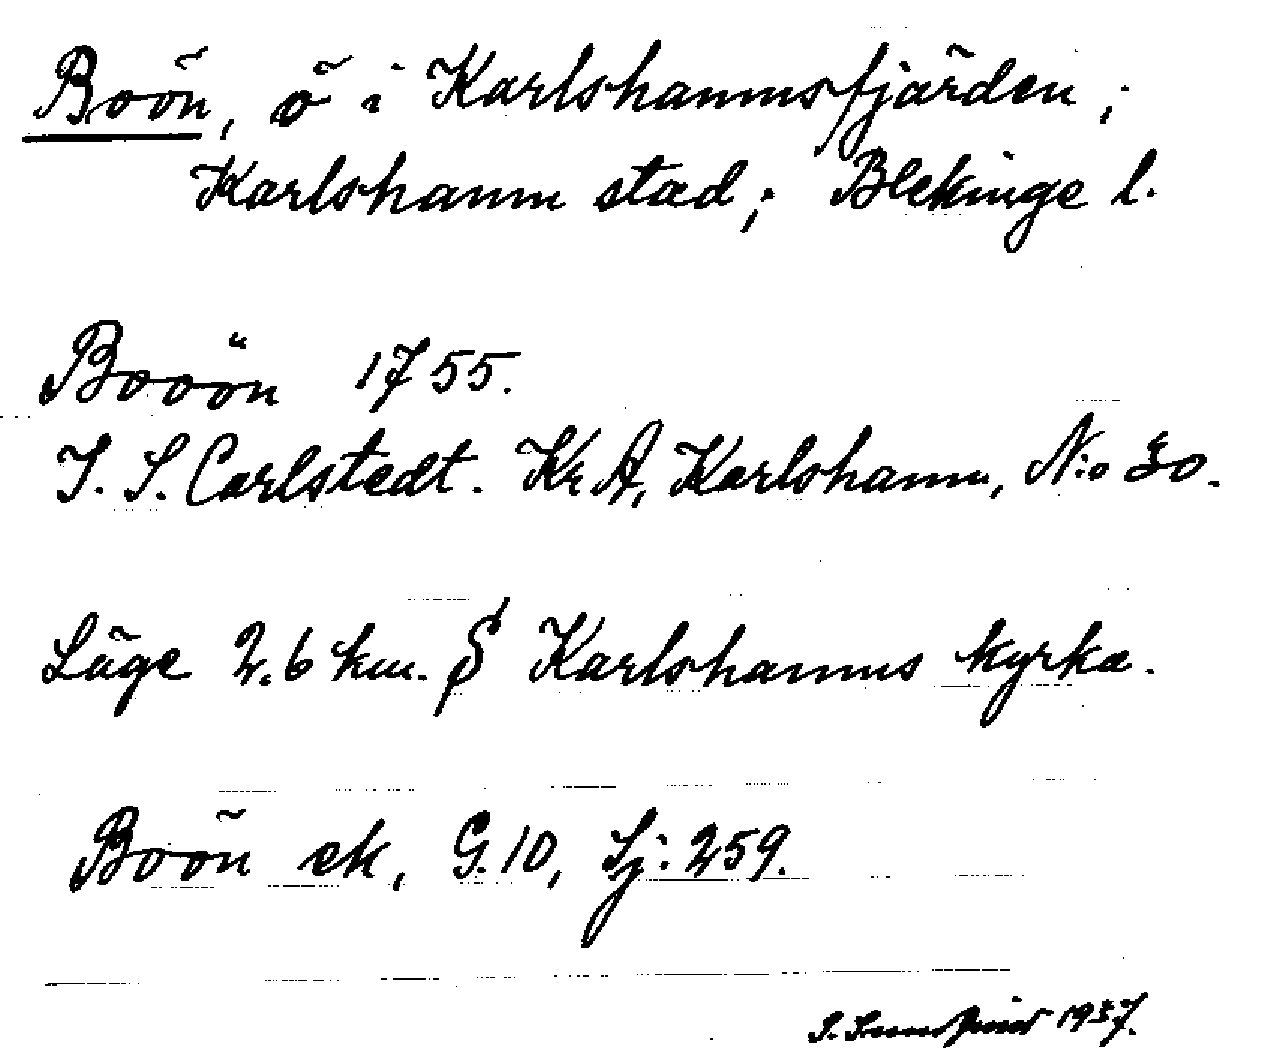 Boön, ö i Karlshamnsfjärden;
Karlshamn stad; Blekinge l.
Booön 1755.
J. S. Carlstedt. Kr A, Karlshamn, N:o 30.
Läge 2.6 km. S Karlshamns kyrka.
Boön ek, G. 10, Sj: 259.
1937.